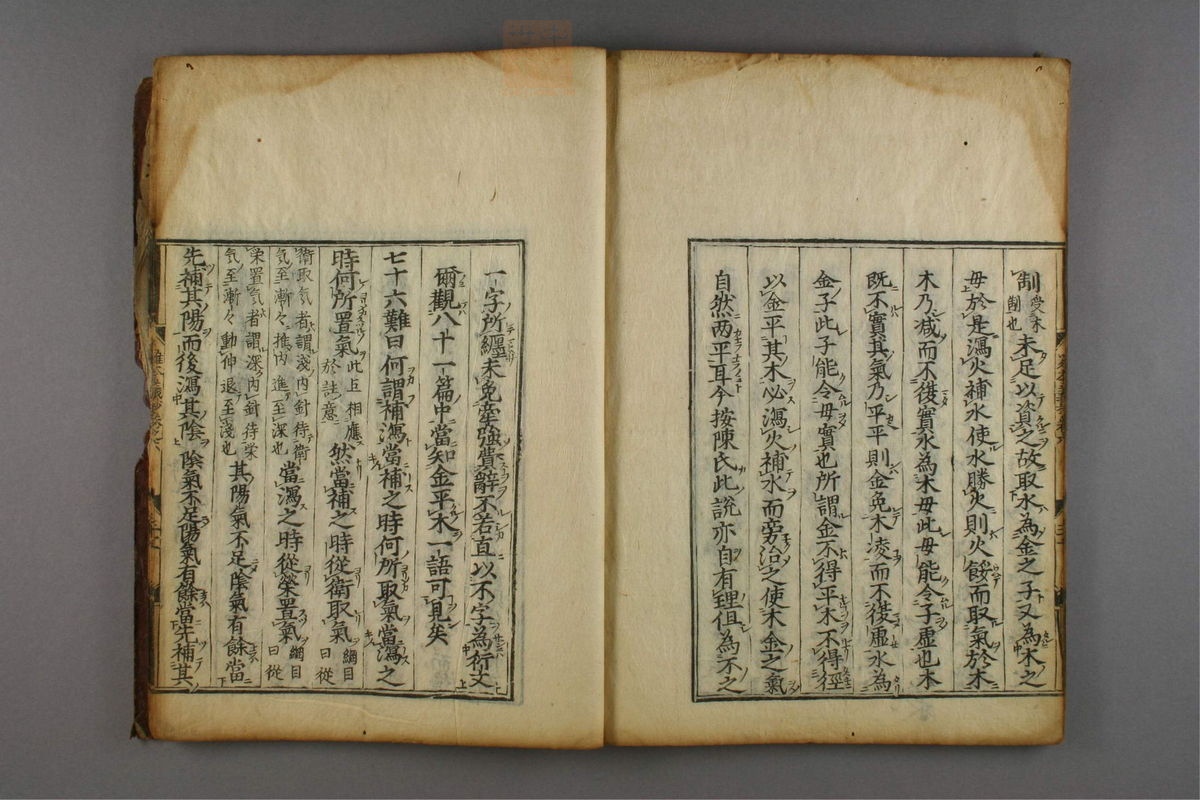 制受木制也未足以資之故取水為金之子又為木之
母於是瀉火補水使水勝火則火餒而取氣於木
木乃减而不復實水為木母此母能令子虛也木
既不實其氣乃平平則金免木凌而不復虛水為
金子此子能令母實也所謂金不得平木不得徑
以金平其木必瀉火補水而旁治之使木金之氣
自然两平耳今按陳氏此說亦自有理但為不之
一字所纏未免牽強費辭不若直以不字為衍文
爾觀八十一篇中當知金平木一語可見矣
七十六難曰何謂補瀉當補之時何所取氣當瀉之
時何所置氣此臣相應於詰意然當補之時從衛取氣綱目曰從
衛取気者謂淺内針待衛気至漸々推内進至深也當瀉之時從榮置氣綱目曰從
栄置気者謂深内針待栄気至漸々動伸退至淺也其陽氣不足陰氣有餘當
先補其陽而後瀉其陰陰氣不足陽氣有餘當先補其